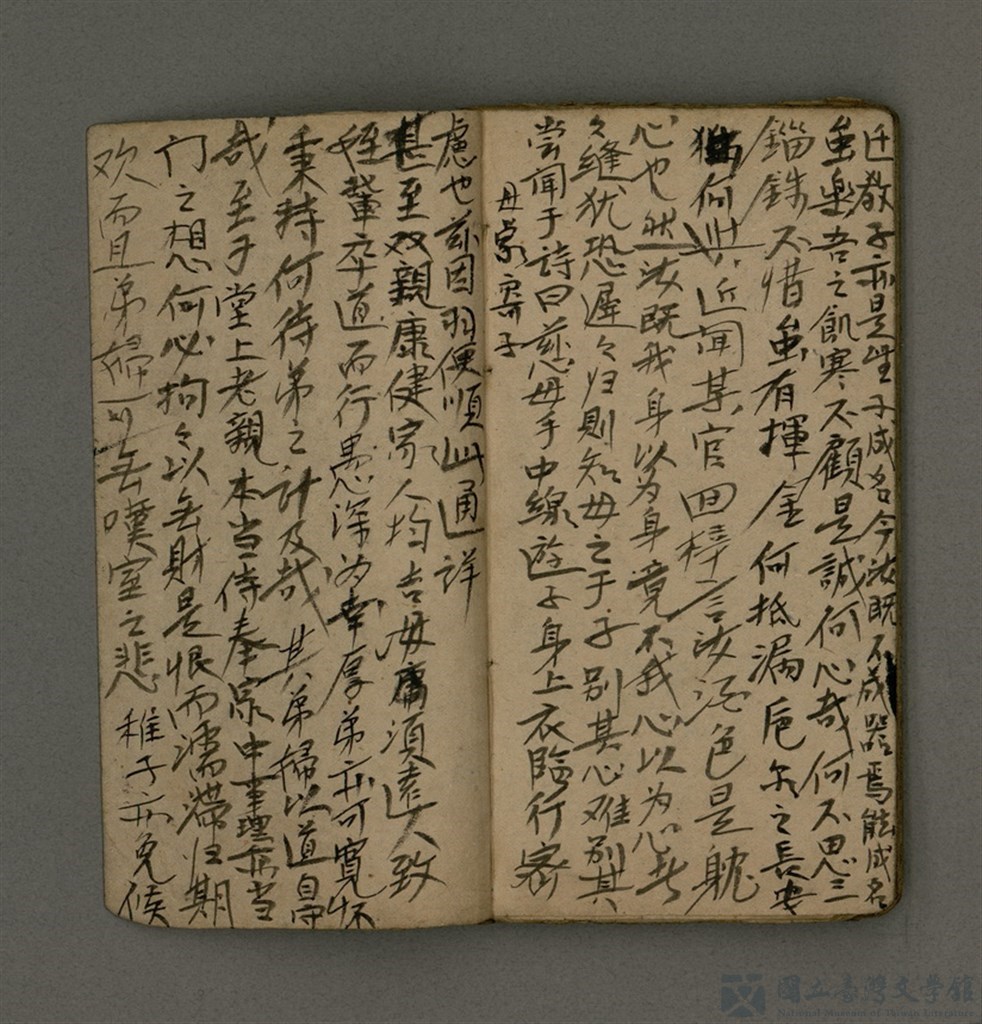 欢而且弟婦可無嘆室之悲 稚子亦免候
门之想何必拘々以無財是恨而濡滯归期
哉至于堂上老親本当侍奉家中事理亦当
秉持何待弟之計及哉 其弟婦以道自守
姪輩卒道而行愚深为幸厚弟亦可寬怀
甚至双親康健家人均吉毋庸須遠人致
慮也茲因羽便順此通詳
母家寄子
尝闻于詩曰慈母手中線遊子身上衣臨行密
々縫犹恐遲々归則知母之于子别其心难别其
心也然汝既我身以为身竟不我心以为心者
何 近闻某官回梓言汝酒色是耽
錙銖不惜虽有揮金何抵漏卮 之長安
虽樂吾之飢寒不顧是誠何心哉何不思三
迁教子亦是生子成名今汝既不成器焉能成名
國立臺灣文學館
National Museum of Taiwan Literature